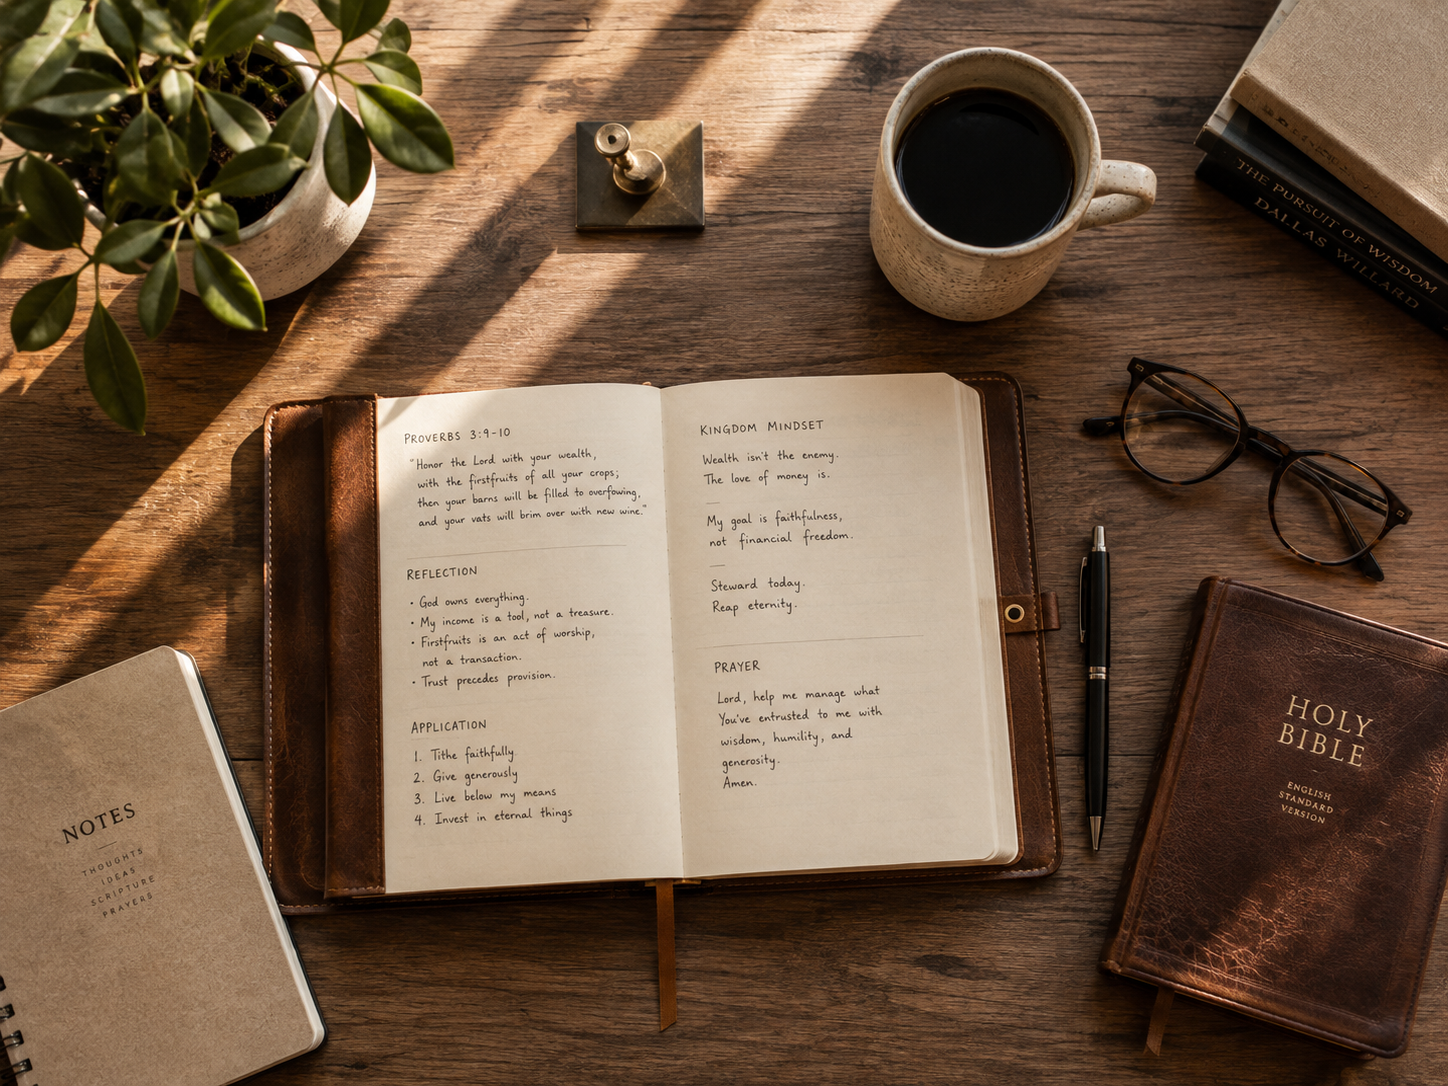 PROVERBS 3:9-10
"Honor the Lord with your wealth,
with the firstfruits of all your crops;
then your barns will be filled to overfowing,
and your vats will brim over with new wine."
REFLECTION
• God owns everything.
• My income is a tool, not a treasure.
• Firstfruits is an act of worship,
not a transaction.
• Trust precedes provision.
APPLICATION
1. Tithe faithfully
2. Give generously
3. Live below my means
4. Invest in eternal things
KINGDOM MINDSET
Wealth isn't the enemy.
The love of money is.
—
My goal is faithfulness,
not financial freedom.
—
Steward today.
Reap eternity.
PRAYER
Lord, help me manage what
You've entrusted to me with
wisdom, humility, and
generosity.
Amen.
NOTES
THOUGHTS
IDEAS
SCRIPTURE
PRAYERS
THE PURSUIT OF WISDOM
DALLAS WILLARD
HOLY
BIBLE
ENGLISH
STANDARD
VERSION